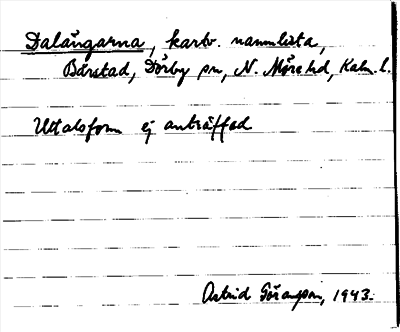 Dalängarna, kartv. namnlista,
Bårstad, Dörby sn, N. Möre hd, Kalm. l.
Uttalsform ej anträffad
Astrid Göransson, 1943.